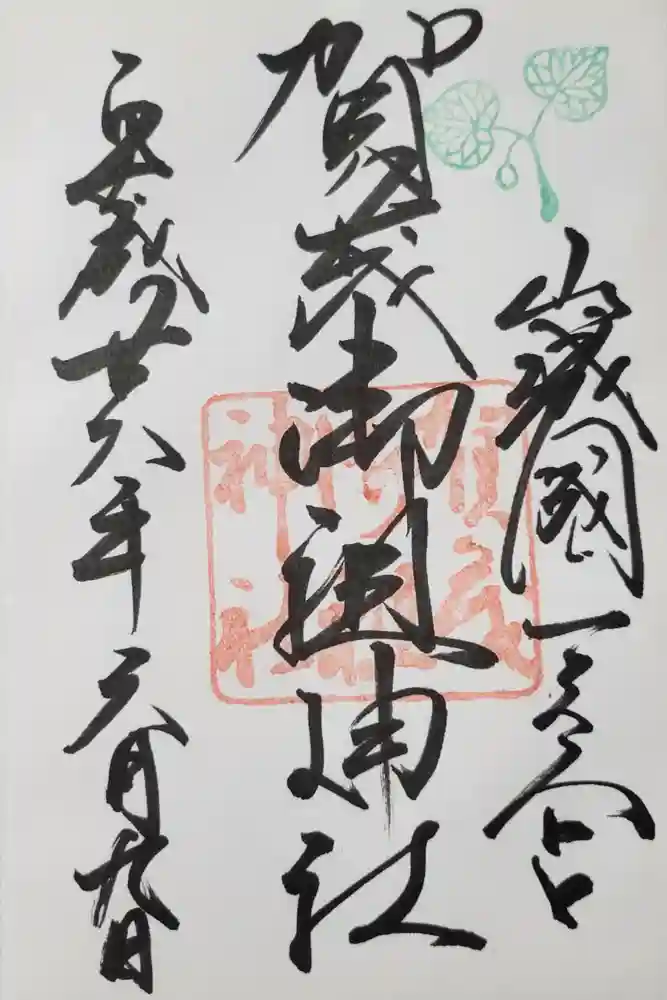 山城國一之宮
賀茂御祖神社
賀茂
御祖
神社
廿八年六月九日